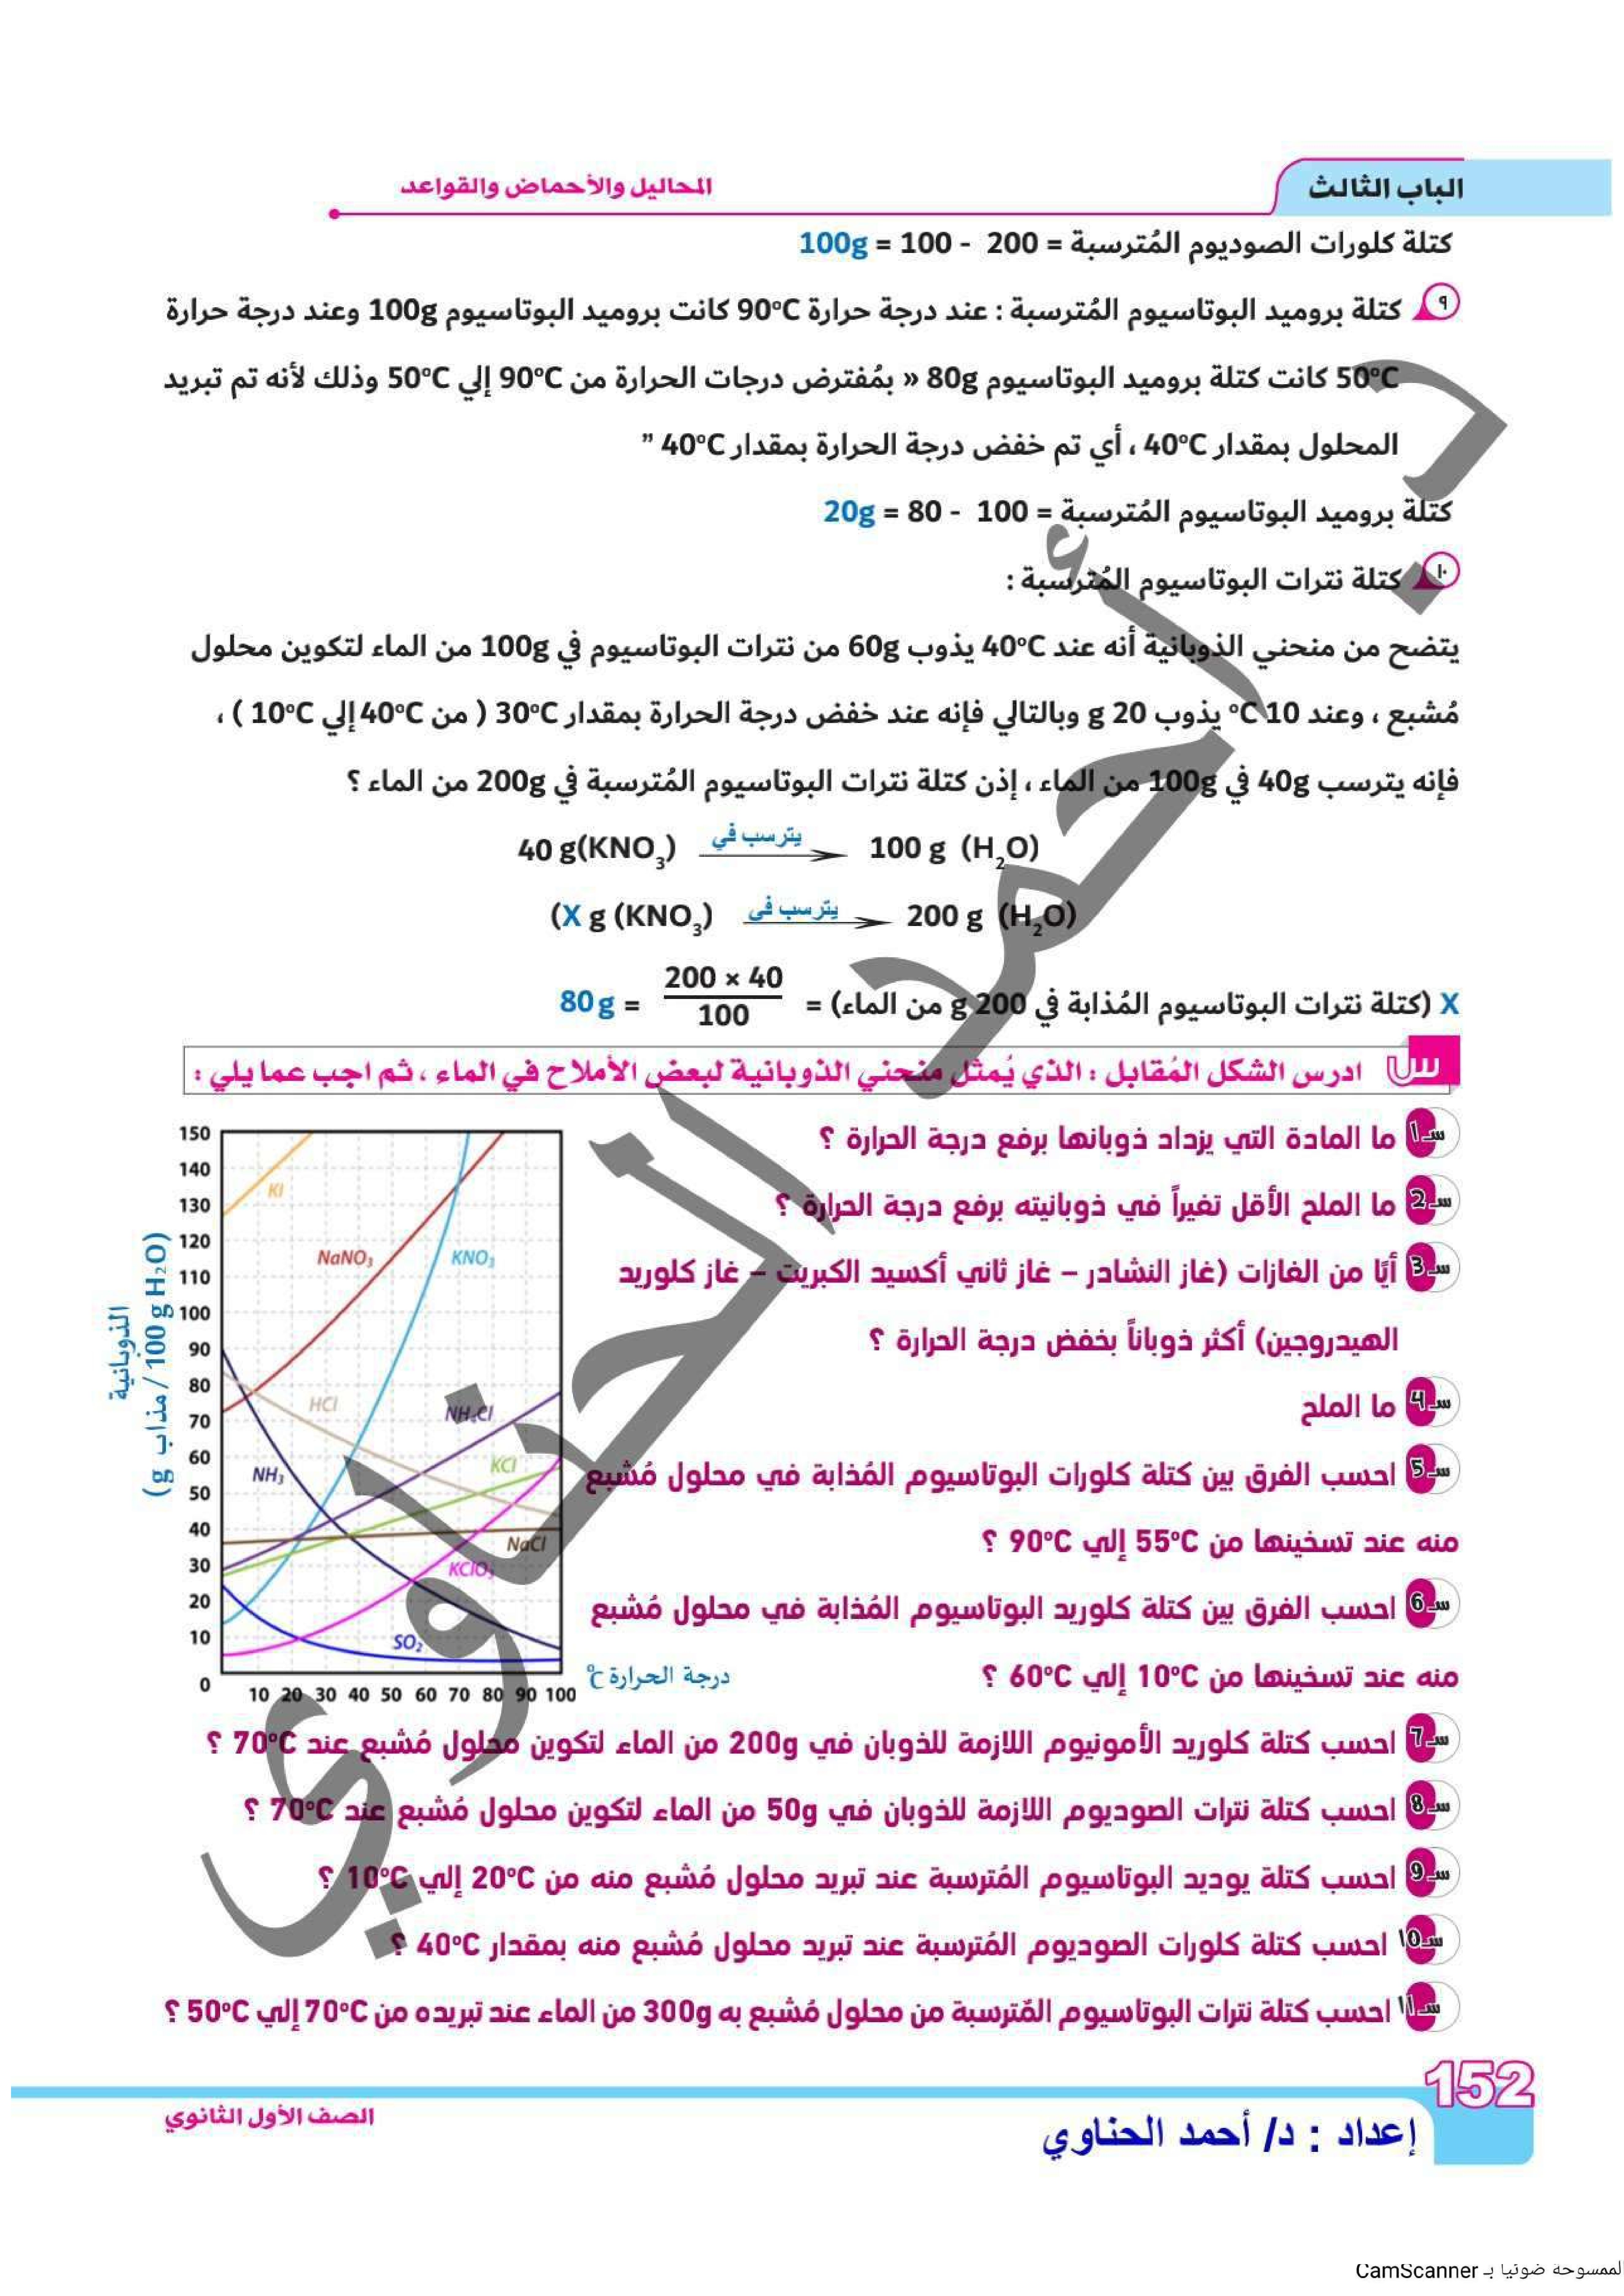 الباب الثالث
المحاليل والأحماض والقواعد
كتلة كلورات الصوديوم المُترسبة = 200 - 100 = 100g
٩ كتلة بروميد البوتاسيوم المُترسبة : عند درجة حرارة 90°C كانت بروميد البوتاسيوم 100g وعند درجة حرارة
50°C كانت كتلة بروميد البوتاسيوم 80g « بمُفترض درجات الحرارة من 90°C إلي 50°C وذلك لأنه تم تبريد
المحلول بمقدار 40°C ، أي تم خفض درجة الحرارة بمقدار 40°C ”
كتلة بروميد البوتاسيوم المُترسبة = 100 - 80 = 20g
١٠ كتلة نترات البوتاسيوم المُترسبة :
يتضح من منحني الذوبانية أنه عند 40°C يذوب 60g من نترات البوتاسيوم في 100g من الماء لتكوين محلول
مُشبع ، وعند 10 °C يذوب 20 g وبالتالي فإنه عند خفض درجة الحرارة بمقدار 30°C ( من 40°C إلي 10°C ) ،
فإنه يترسب 40g في 100g من الماء ، إذن كتلة نترات البوتاسيوم المُترسبة في 200g من الماء ؟
40 g(KNO3) يترسب في 100 g (H2O)
(X g (KNO3) يترسب في 200 g (H2O)
X (كتلة نترات البوتاسيوم المُذابة في 200 g من الماء) = 200 × 40 / 100 = 80 g
س ادرس الشكل المُقابل : الذي يُمثل منحني الذوبانية لبعض الأملاح في الماء ، ثم اجب عما يلي :
سـ1 ما المادة التي يزداد ذوبانها برفع درجة الحرارة ؟
سـ2 ما الملح الأقل تغيراً في ذوبانيته برفع درجة الحرارة ؟
سـ3 أيًا من الغازات (غاز النشادر – غاز ثاني أكسيد الكبريت – غاز كلوريد
الهيدروجين) أكثر ذوباناً بخفض درجة الحرارة ؟
سـ4 ما الملح
سـ5 احسب الفرق بين كتلة كلورات البوتاسيوم المُذابة في محلول مُشبع
منه عند تسخينها من 55°C إلي 90°C ؟
سـ6 احسب الفرق بين كتلة كلوريد البوتاسيوم المُذابة في محلول مُشبع
منه عند تسخينها من 10°C إلي 60°C ؟
الذوبانية
(g مذاب / 100 g H2O)
150
140
130
120
110
100
90
80
70
60
50
40
30
20
10
0
KI
NaNO3
KNO3
HCl
NH4Cl
NH3
KCl
NaCl
KClO3
SO2
10 20 30 40 50 60 70 80 90 100
درجة الحرارة °C
سـ7 احسب كتلة كلوريد الأمونيوم اللازمة للذوبان في 200g من الماء لتكوين محلول مُشبع عند 70°C ؟
سـ8 احسب كتلة نترات الصوديوم اللازمة للذوبان في 50g من الماء لتكوين محلول مُشبع عند 70°C ؟
سـ9 احسب كتلة يوديد البوتاسيوم المُترسبة عند تبريد محلول مُشبع منه من 20°C إلي 10°C ؟
سـ10 احسب كتلة كلورات الصوديوم المُترسبة عند تبريد محلول مُشبع منه بمقدار 40°C ؟
سـ11 احسب كتلة نترات البوتاسيوم المُترسبة من محلول مُشبع به 300g من الماء عند تبريده من 70°C إلي 50°C ؟
152
إعداد : د/ أحمد الحناوي
الصف الأول الثانوي
د. أحمد الحناوي
الممسوحة ضوئيا بـ CamScanner